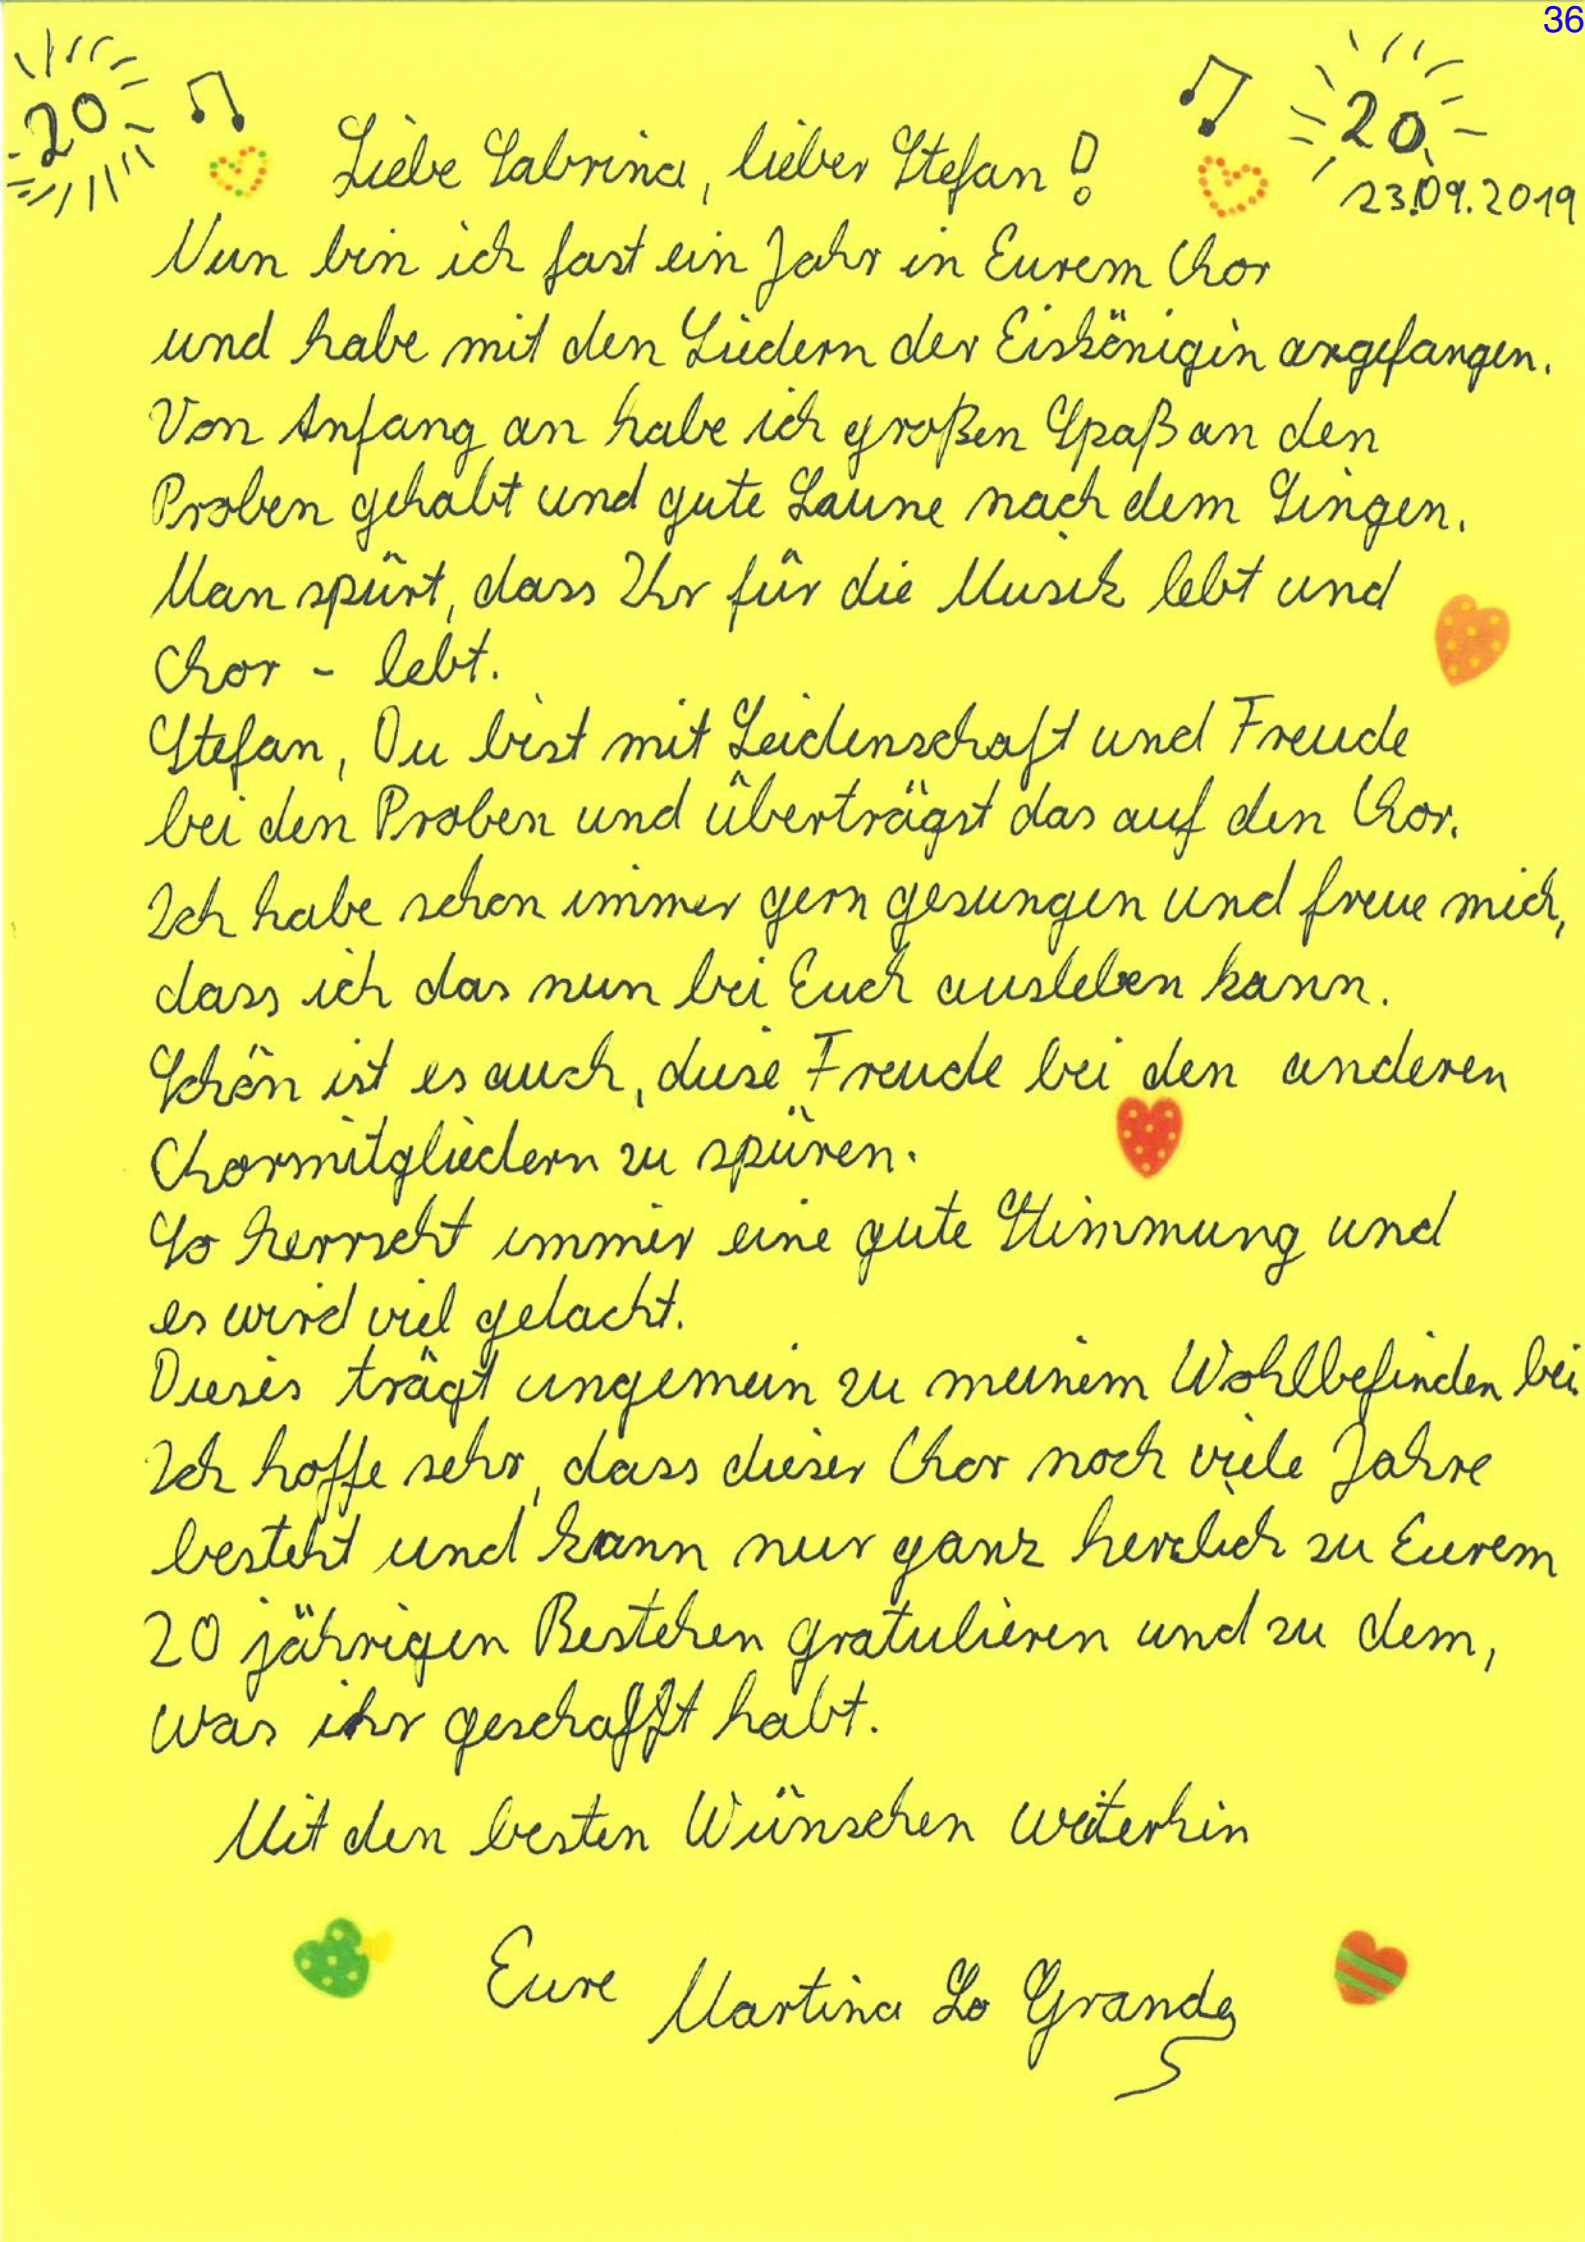 36
20
20
23.09.2019
Liebe Sabrina, lieber Stefan!
Nun bin ich fast ein Jahr in Eurem Chor
und habe mit den Liedern der Eiskönigin angefangen.
Von Anfang an habe ich großen Spaß an den
Proben gehabt und gute Laune nach dem Singen.
Man spürt, dass Ihr für die Musik lebt und
Chor - lebt.
Stefan, Du bist mit Leidenschaft und Freude
bei den Proben und überträgst das auf den Chor.
Ich habe schon immer gern gesungen und freue mich,
dass ich das nun bei Euch ausleben kann.
Schön ist es auch, diese Freude bei den anderen
Chormitgliedern zu spüren.
So herrscht immer eine gute Stimmung und
es wird viel gelacht.
Dieses trägt ungemein zu meinem Wohlbefinden bei.
Ich hoffe sehr, dass dieser Chor noch viele Jahre
besteht und kann nur ganz herzlich zu Eurem
20 jährigen Bestehen gratulieren und zu dem,
was ihr geschafft habt.
Mit den besten Wünschen weiterhin
Eure Martina Lo Grande